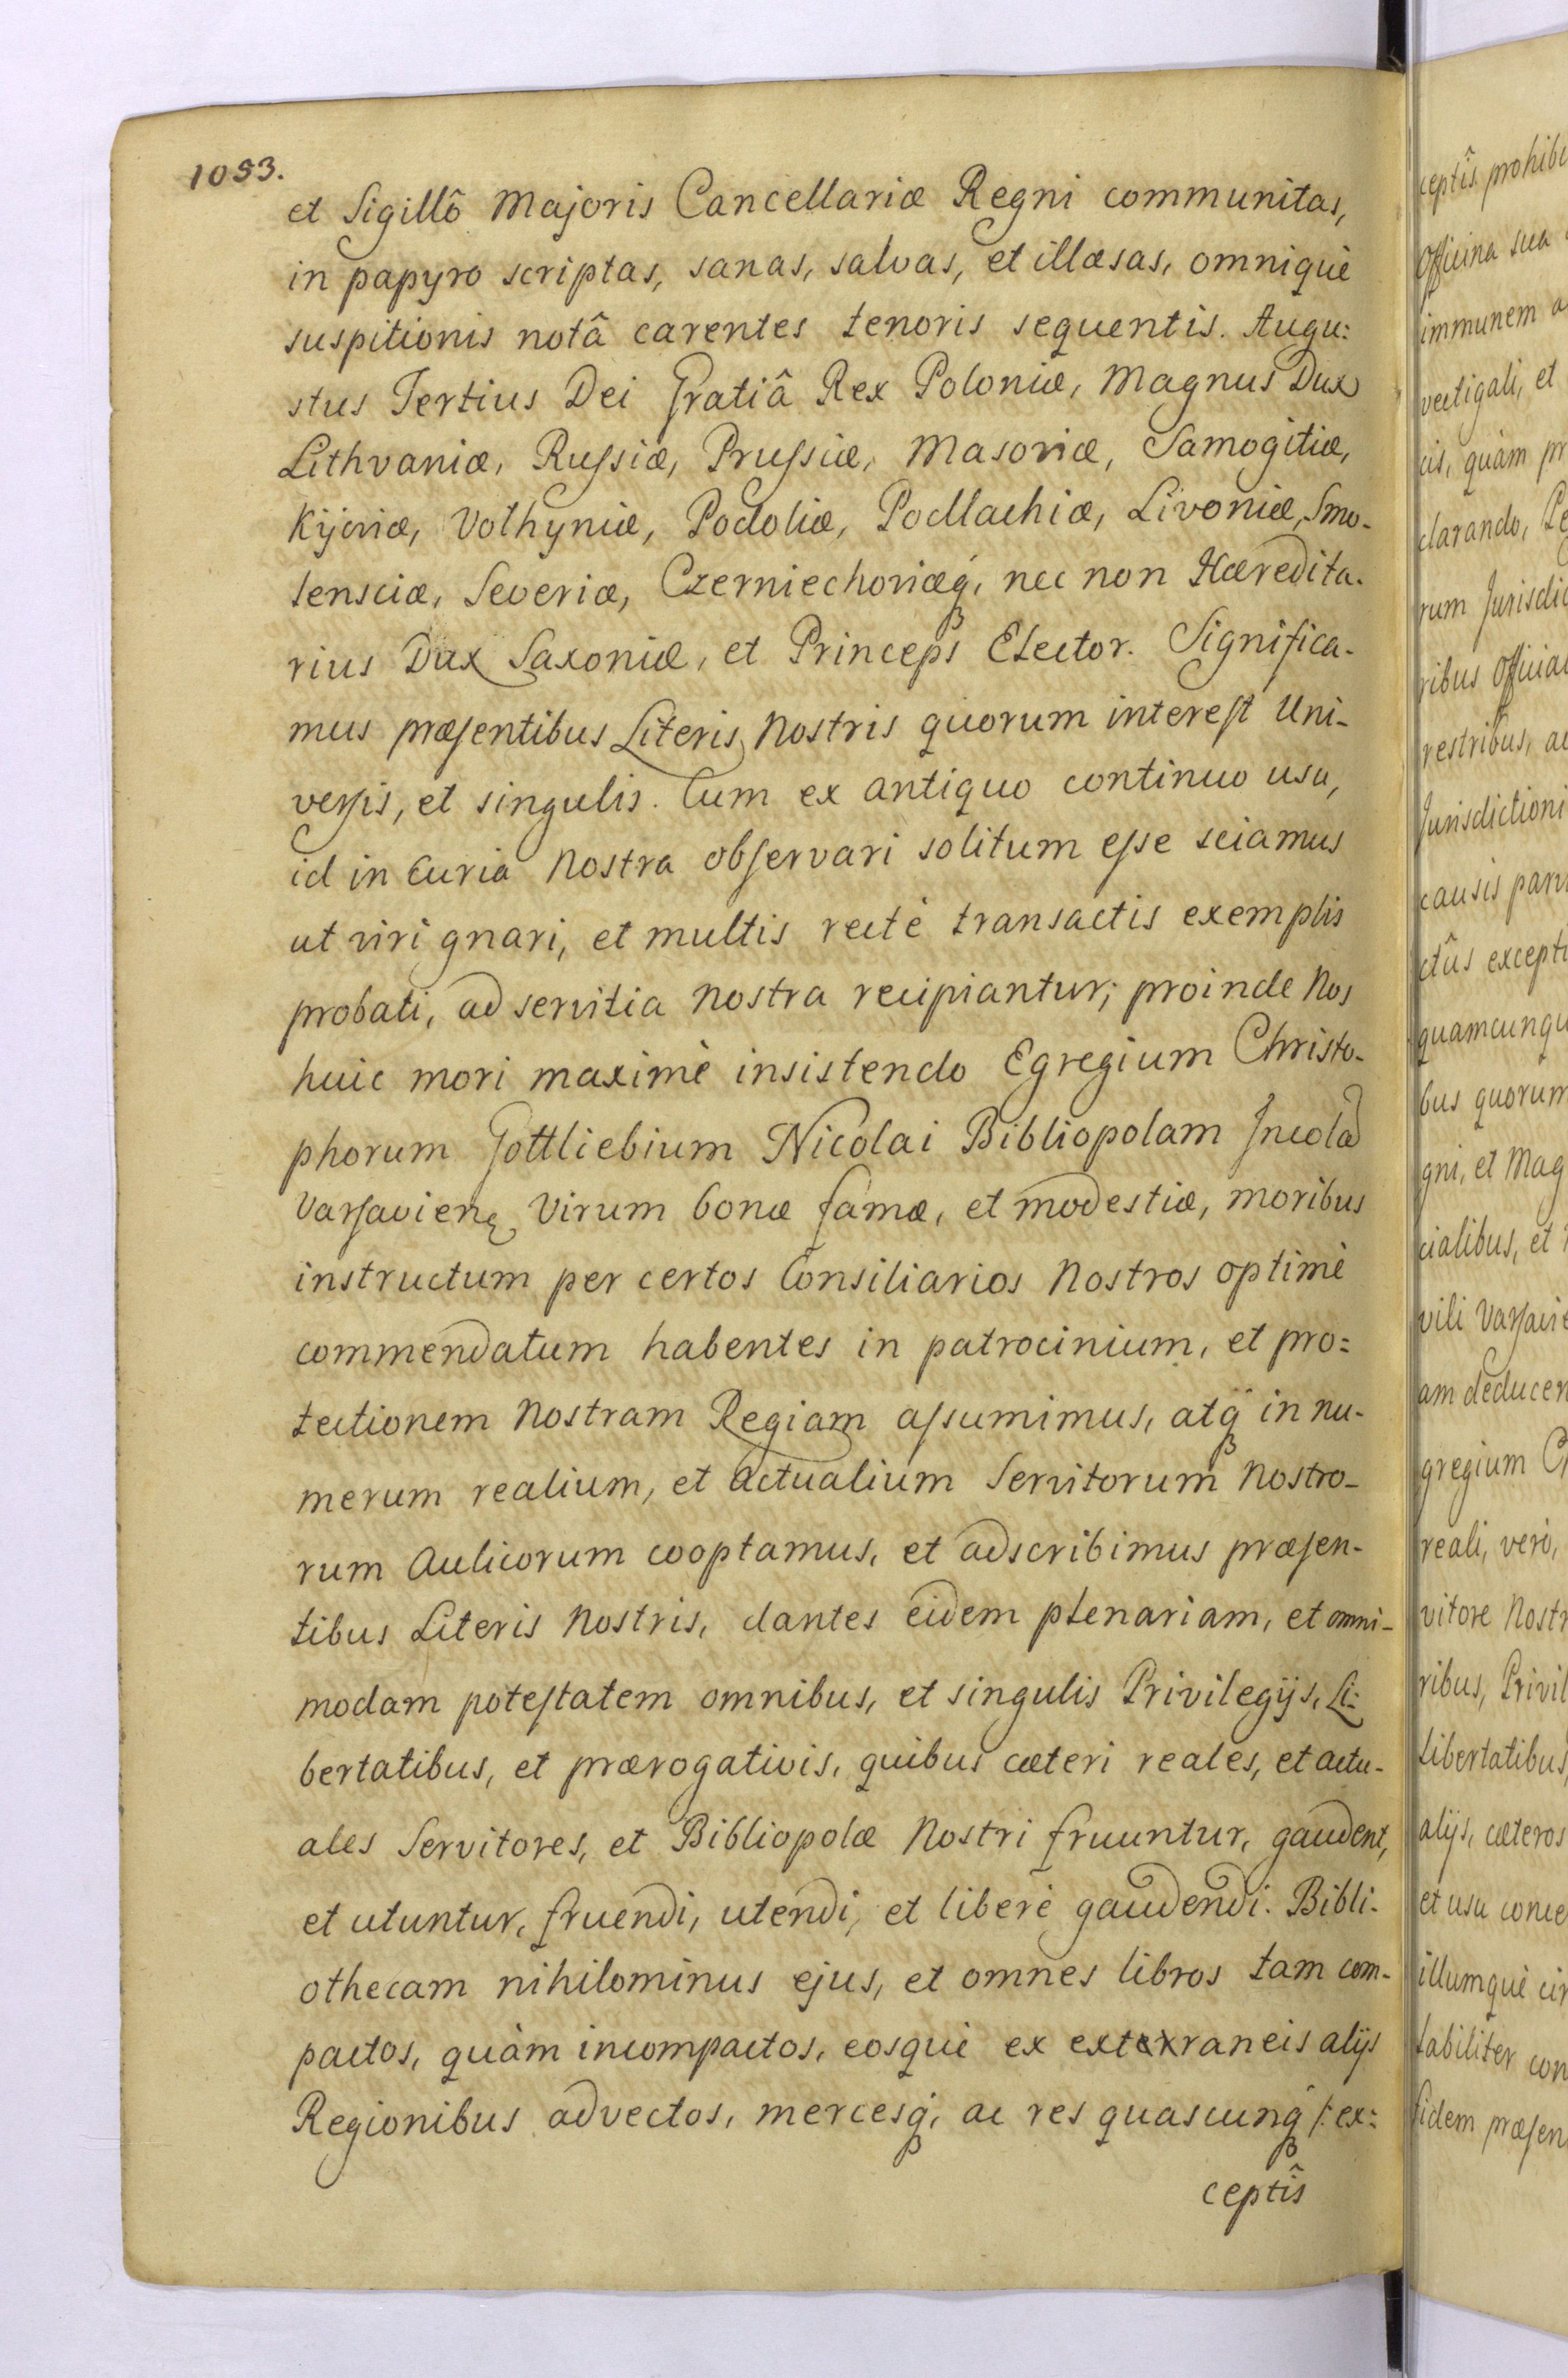 1053.
et Sigillô Majoris Cancellariæ Regni communitas,
in papyro scriptas, sanas, salvas, et illæsas, omniquè
suspitionis notâ carentes tenoris sequentis. Augu:
stus Tertius Dei Gratiâ Rex Poloniæ, Magnus Dux
Lithvaniæ, Rußiæ, Prußiæ, Masoviæ, Samogitiæ,
Kijoviæ, Volhyniæ, Podoliæ, Podlachiæ, Livoniæ, Smo-
lensciæ, Severiæ, Czerniechoviæq́, nec non Hæredita-
rius Dux Saxoniæ, et Princeps Elector. Significa-
mus præsentibus Literis Nostris quorum interest Uni-
versis, et singulis. Cum ex antiquo continuo usu,
id in Curia Nostra observari solitum esse sciamus
ut viri gnari, et multis rectè transactis exemplis
probati, ad servitia Nostra recipiantur; proinde Nos
huic mori maximè insistendo Egregium Christo-
phorum Gottliebium Nicolai Bibliopolam Incolã
Varsavienę Virum bonæ famæ, et modestiæ, moribus
instructum per certos Consiliarios Nostros optimè
commendatum habentes in patrocinium, et pro:
tectionem Nostram Regiam assumimus, atq́ in nu-
merum realium, et actualium Servitorum Nostro-
rum Aulicorum cooptamus, et adscribimus præsen-
tibus Literis Nostris, dantes eidem plenariam, et omni-
modam potestatem omnibus, et singulis Privilegijs, Li:
bertatibus, et prærogativis, quibus cæteri reales, et actu-
ales Servitores, et Bibliopolæ Nostri fruuntur, gaudent,
et utuntur, fruendi, utendi, et liberè gaudendi. Bibli-
othecam nihilominus ejus, et omnes libros tam com-
pactos, quàm incompactos, eosquè ex extexraneis alijs
Regionibus advectos, mercesq́, ac res quascunq́ /: ex:
ceptîs
ceptîs prohibi
Officina sua
immunem a
vectigali, et
cis, quàm pr
clarando,
rum Jurisdic
ribus Officia
restribus, ac
Jurisdictioni
causis parv
ctûs excepti
quamcunqu
bus quorum
gni, et Mag
cialibus, et
vili Varsavie
am deducen
gregium C
reali, verò,
vitore Nostr
ribus, Privil
Libertatibus,
alijs, cæteros
et usu conce
illumquè cir
tabiliter con
fidem præsen